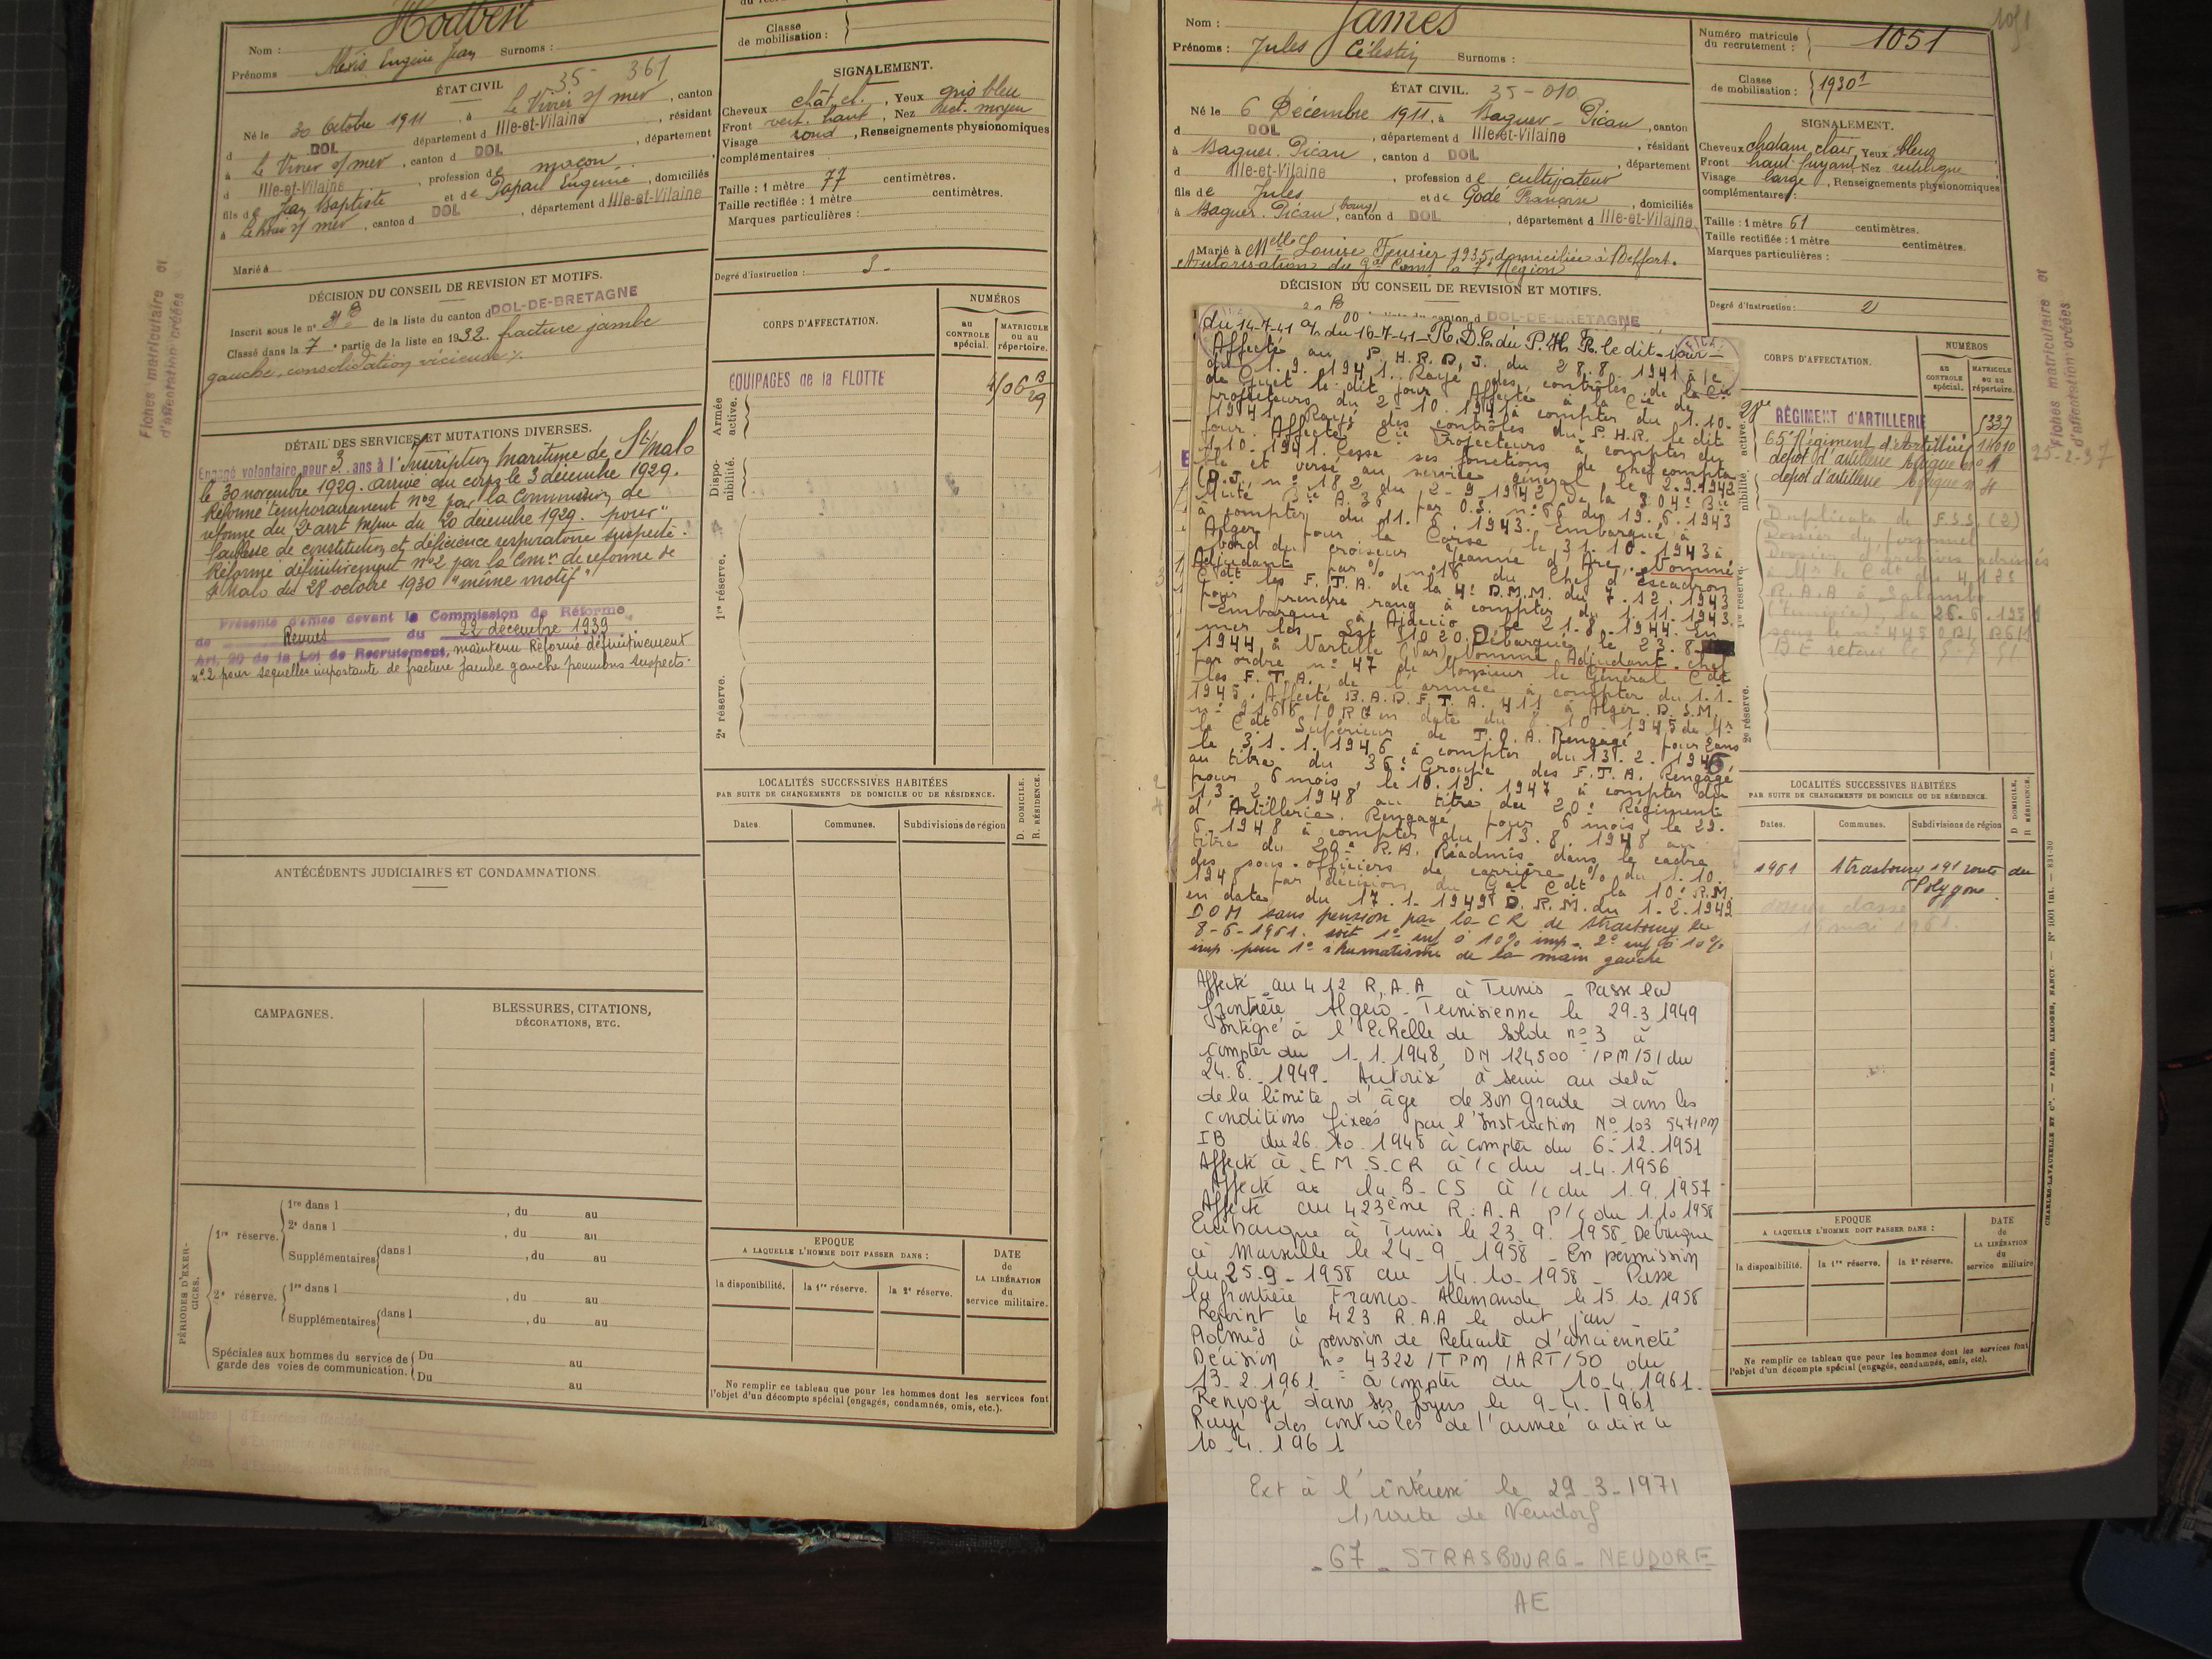 Nom : Hodbert
Prénoms Alexis Eugène Jean Surnoms :
ÉTAT CIVIL 35 - 361
Né le 30 Octobre 1911, à Le Vivier s/ mer, canton
d DOL département d Ille-et-Vilaine, résidant
à Le Vivier s/ mer, canton d DOL, département
d Ille-et-Vilaine, profession de maçon
fils de Jean Baptiste et de Papail Eugénie, domiciliés
à Le Vivier s/ mer, canton d DOL, département d Ille-et-Vilaine
Marié à
DÉCISION DU CONSEIL DE REVISION ET MOTIFS.
Inscrit sous le n° de la liste du canton d DOL-DE-BRETAGNE
Classé dans la 7e partie de la liste en 1932. fracture jambe
gauche, consolidation vicieuse
DÉTAIL DES SERVICES ET MUTATIONS DIVERSES.
Engagé volontaire pour 3 ans à l'Inscription Maritime de St Malo
le 30 novembre 1929. arrivé au corps le 3 décembre 1929.
Réformé temporairement n°2 par la Commission de
réforme du 2e arrt mme du 20 décembre 1929. pour "
faiblesse de constitution et déficience respiratoire suspecte.
Réformé définitivement n°2 par la Comon de réforme de
St Malo du 28 octobre 1930 "même motif"
Présenté d'office devant la Commission de Réforme
de Rennes du 22 décembre 1939
Art. 20 de la Loi de Recrutement, maintenu Réformé définitivement
n°2 pour séquelles importante de fracture jambe gauche poumons suspects.
ANTÉCÉDENTS JUDICIAIRES ET CONDAMNATIONS
CAMPAGNES.
BLESSURES, CITATIONS,
DÉCORATIONS, ETC.
PÉRIODES D'EXERCICES.
1re réserve.
1re dans l , du au
2e dans l , du au
Supplémentaires dans l , du au
2e réserve.
1re dans l , du au
Supplémentaires dans l , du au
Spéciales aux hommes du service de
garde des voies de communication.
Du au
Du au
Nombre d'Exercices effectués
de d'Exemption de Période
Jours d'Exercices restant à faire
Fiches matriculaire et
d'affectation créées
Classe
de mobilisation :
SIGNALEMENT.
Cheveux chât. cl., Yeux gris bleu
Front vert. haut, Nez rect. moyen
Visage rond, Renseignements physionomiques
complémentaires
Taille : 1 mètre 77 centimètres.
Taille rectifiée : 1 mètre centimètres.
Marques particulières :
Degré d'instruction :
CORPS D'AFFECTATION.
NUMÉROS
au CONTROLE spécial.
MATRICULE ou au répertoire.
ÉQUIPAGES de la FLOTTE
Armée active.
Disponibilité.
1re réserve.
2e réserve.
LOCALITÉS SUCCESSIVES HABITÉES
PAR SUITE DE CHANGEMENTS DE DOMICILE OU DE RÉSIDENCE.
D. DOMICILE.
R. RÉSIDENCE.
Dates.
Communes.
Subdivisions de région
EPOQUE
A LAQUELLE L'HOMME DOIT PASSER DANS :
la disponibilité.
la 1re réserve.
la 2e réserve.
DATE
de
LA LIBÉRATION
du
service militaire.
Ne remplir ce tableau que pour les hommes dont les services font
l'objet d'un décompte spécial (engagés, condamnés, omis, etc.).
Nom : James
Prénoms : Jules Célestin Surnoms :
ÉTAT CIVIL. 35 - 010
Né le 6 Décembre 1911, à Baguer-Pican, canton
d DOL, département d Ille-et-Vilaine, résidant
à Baguer-Pican, canton d DOL, département
d Ille-et-Vilaine, profession de cultivateur
fils de Jules et de Godé Françoise, domiciliés
à Baguer-Pican (bourg), canton d DOL, département d Ille-et-Vilaine
Marié à Melle Louise 1935, domiciliée à Belfort.
Autorisation du Gal Comt la 7e Région
DÉCISION DU CONSEIL DE REVISION ET MOTIFS.
canton d DOL-DE-BRETAGNE
du 14-7-41 du 16-7-41 - R.D.C. du P.H.R. le dit jour
Affecté au P.H.R.D.J. du 28.8.1941 à /c
du 1.9.1941. Rayé des contrôles de la Cie
de Guet le dit jour. Affecté à la Cie de
projecteurs du 2-10.1941 à compter du 1.10.
1941. Rayé des contrôles du P.H.R. le dit
jour. Affecté Cie Projecteurs à compter du
1.10.1941. Cesse ses fonctions de chef comptable
et versé au service général le 2.9.1942
(D.J. n° 182 du 2-9.1942). De la 304e Bie
Muté Bie A.36 par O.S. n° 66 du 19.6.1943
à compter du 11.6.1943. Embarqué à
Alger pour la Corse le 31.10.1943 à
bord du croiseur Jeanne d'Arc. Nommé
Adjudant par % n° 16 du Chef d'escadron
Cdt les F.T.A. de la 4e D.M.M. du 7.12.1943
pour prendre rang à compter du 1.11.1943.
Embarqué à Ajaccio le 21.8.1944. En
mer les Est 1020. Débarqué le 23.8.
1944 à Vartelle (Var). Nommé Adjudant-chef
par ordre n° 47 de Monsieur le Général Cdt
les F.T.A. de l'armée à compter du 1.1.
1945. Affecté B.A.D.F.T.A. 411 à Alger D.S.M.
n° 2166/ORG en date du 8.10.1945 de Mr
le Cdt Supérieur de T.O.A. Rengagé pour 2ans
le 31.1.1946 à compter du 13.2.1946
au titre du 36e Groupe des F.T.A. Rengagé
pour 6 mois, le 10.12.1947 à compter du
13.2.1948 au titre du 20e Régiment
d'Artillerie. Rengagé pour 6 mois le 29.
6.1948 à compter du 13.8.1948 au
titre du 20e R.A. Réadmis dans le cadre
des sous-officiers de carrière % du 1.10.
1948 par décision du Gal Cdt la 10e R.M.
en date du 17.1.1949 D.R.M. du 1.2.1949
DOM sans pension par la CR de Strasbourg le
8-6-1961. soit 1° inf à 10% imp. 2° inf à 10%
imp. pour 1° rhumatisme de la main gauche
Affecté au 412 R.A.A à Tunis - Passe la
frontière Algéro-Tunisienne le 29.3.1949
Intégré à l'Echelle de Solde n° 3 à
compter du 1.1.1948, DM 124500 /PM/S/ du
24.8.1949. Autorisé à servir au delà
de la limite d'âge de son grade dans les
conditions fixées par l'Instruction N° 103 547/PM
IB du 26.10.1948 à compter du 6.12.1951
Affecté à E M S.CR à /c du 1.4.1956
Affecté à la B-CS à /c du 1.9.1957
Affecté au 423ème R.A.A p/c du 1.10.1958
Embarque à Tunis le 23.9.1958 - Débarque
à Marseille le 24-9-1958 - En permission
du 25-9-1958 au 14.10-1958 - Passe
la frontière Franco-Allemande le 15.10.1958
Rejoint le 423 R.A.A le dit jour
Admis à pension de Retraite d'ancienneté
Décision n° 4322/TPM/ART/SO du
13.2.1961 à compter du 10.4.1961.
Renvoyé dans ses foyers le 9-4.1961
Rayé des contrôles de l'armée active le
10.4.1961
Ext à l'intéressé le 29-3-1971
1, route de Neudorf
67 - STRASBOURG - NEUDORF
AE
1051
Numéro matricule
du recrutement : 1051
Classe
de mobilisation : 1930
SIGNALEMENT.
Cheveux chatain clair, Yeux bleus
Front haut fuyant, Nez rectiligne
Visage large, Renseignements physionomiques
complémentaires :
Taille : 1 mètre 61 centimètres.
Taille rectifiée : 1 mètre centimètres.
Marques particulières :
Degré d'instruction : 2
CORPS D'AFFECTATION.
NUMÉROS
au CONTROLE spécial.
MATRICULE ou au répertoire.
28me RÉGIMENT D'ARTILLERIE 5337
65e Régiment d'Artillerie 14010
dépôt d'artillerie Afrique n° 4
dépôt d'artillerie Afrique n° 4
Duplicata de F.S.S. (2)
Dossier du personnel
Dossier d'archives adressés
à Mr le Cdt du 4/128
R.A.A à Salambo
(Tunisie) le 26.6.1951
sous le n° 445
BE retour le
2e réserve.
LOCALITÉS SUCCESSIVES HABITÉES
PAR SUITE DE CHANGEMENTS DE DOMICILE OU DE RÉSIDENCE.
D. DOMICILE.
R. RÉSIDENCE.
Dates.
Communes.
Subdivisions de région
1961 Strasbourg 191 route du
Polygone
dossier classé
mai 1961.
EPOQUE
A LAQUELLE L'HOMME DOIT PASSER DANS :
la disponibilité.
la 1re réserve.
la 2e réserve.
DATE
de
LA LIBÉRATION
du
service militaire
Ne remplir ce tableau que pour les hommes dont les services font
l'objet d'un décompte spécial (engagés, condamnés, omis, etc).
Fiches matriculaire et
d'affectation créées
25-2-37
CHARLES-LAVAUZELLE ET Cie. — PARIS, LIMOGES, NANCY. — N° 1001 int. — 831-30